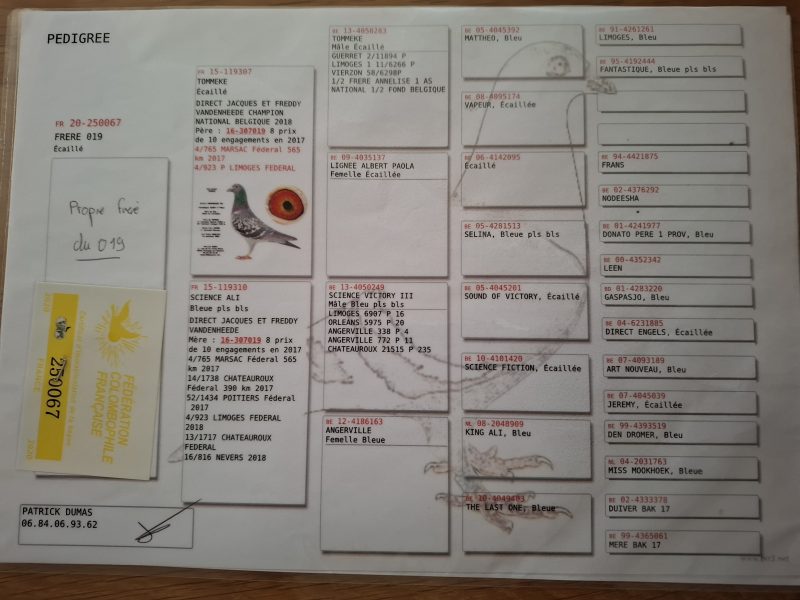 PEDIGREE
FR 20-250067
FRERE 019
Écaillé
Propre frère
du 019
FEDERATION
COLOMBOPHILE
FRANÇAISE
FRANCE
2020
250067
PATRICK DUMAS
06.84.06.93.62
FR 15-119307
TOMMEKE
Écaillé
DIRECT JACQUES ET FREDDY
VANDENHEEDE CHAMPION
NATIONAL BELGIQUE 2018
Père : 16-307019 8 prix
de 10 engagements en 2017
4/765 MARSAC Féderal 565
km 2017
4/923 P LIMOGES FEDERAL
FR 15-119310
SCIENCE ALI
Bleue pls bls
DIRECT JACQUES ET FREDDY
VANDENHEEDE
Mère : 16-307019 8 prix
de 10 engagements en 2017
4/765 MARSAC Féderal 565
km 2017
14/1738 CHATEAUROUX
Féderal 390 km 2017
52/1434 POITIERS Féderal
2017
4/923 LIMOGES FEDERAL
2018
13/1717 CHATEAUROUX
FEDERAL
16/816 NEVERS 2018
BE 13-4050263
TOMMEKE
Mâle Écaillé
GUERRET 2/11894 P
LIMOGES 1 11/6266 P
VIERZON 58/6298P
1/2 FRERE ANNELISE 1 AS
NATIONAL 1/2 FOND BELGIQUE
BE 09-4035137
LIGNEE ALBERT PAOLA
Femelle Écaillée
BE 13-4050249
SCIENCE VICTORY III
Mâle Bleu pls bls
LIMOGES 6907 P 16
ORLEANS 5975 P 20
ANGERVILLE 338 P 4
ANGERVILLE 772 P 11
CHATEAUROUX 21515 P 235
BE 12-4186163
ANGERVILLE
Femelle Bleue
BE 05-4045392
MATTHEO, Bleu
BE 08-4095174
VAPEUR, Écaillée
BE 06-4142095
Écaillé
BE 05-4281513
SELINA, Bleue pls bls
BE 05-4045201
SOUND OF VICTORY, Écaillé
BE 10-4101420
SCIENCE FICTION, Écaillée
NL 08-2048909
KING ALI, Bleu
BE 10-4049403
THE LAST ONE, Bleue
BE 91-4261261
LIMOGES, Bleu
BE 95-4192444
FANTASTIQUE, Bleue pls bls
BE 94-4421875
FRANS
BE 02-4376292
NODEESHA
BE 01-4241977
DONATO PERE 1 PROV, Bleu
BE 00-4352342
LEEN
BD 01-4283220
GASPASJO, Bleu
BE 04-6231885
DIRECT ENGELS, Écaillée
BE 07-4093189
ART NOUVEAU, Bleu
BE 07-4045039
JEREMY, Écaillée
BE 99-4393519
DEN DROMER, Bleu
NL 04-2031763
MISS MOOKHOEK, Bleue
BE 02-4333378
DUIVER BAK 17
BE 99-4365061
MERE BAK 17